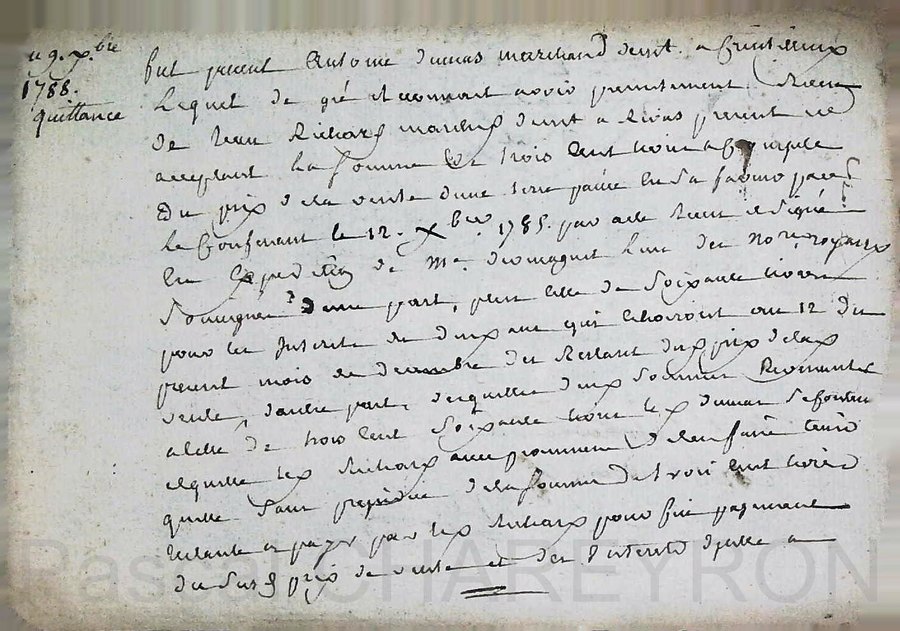 Du 9. xbre
1788.
quittance
fut present Antoine dumas marchand demt. a
Lequel de gré et comant avoir presentement Receu
de Jean Richard marchd demt a Rivas present et
acceptant La somme de trois Cent livres a Compte
Du prix de la vente d'une terre passée En sa faveur par
le Confessant le 12. xbre 1785. par acte Receu et signé
En Expedition de Me. L'un des Notres. royaux
soussignés d'une part, plus celle de soixante livres
pour les Interets de deux ans qui Echoiront au 12 du
present mois de decembre des Restant du prix de lad
vente, d'autre part, desquelles deux sommes Revenants
a celle de trois Cent soixante livres led dumas
et quitte led Richard avec promesse de l'en faire tenir
quitte sans prejudice de la somme de trois Cent livres
restante a payer par led Richard pour fin payement
du susd prix de vente et des Interets d'jcelle a
Pascal CHAREYRON